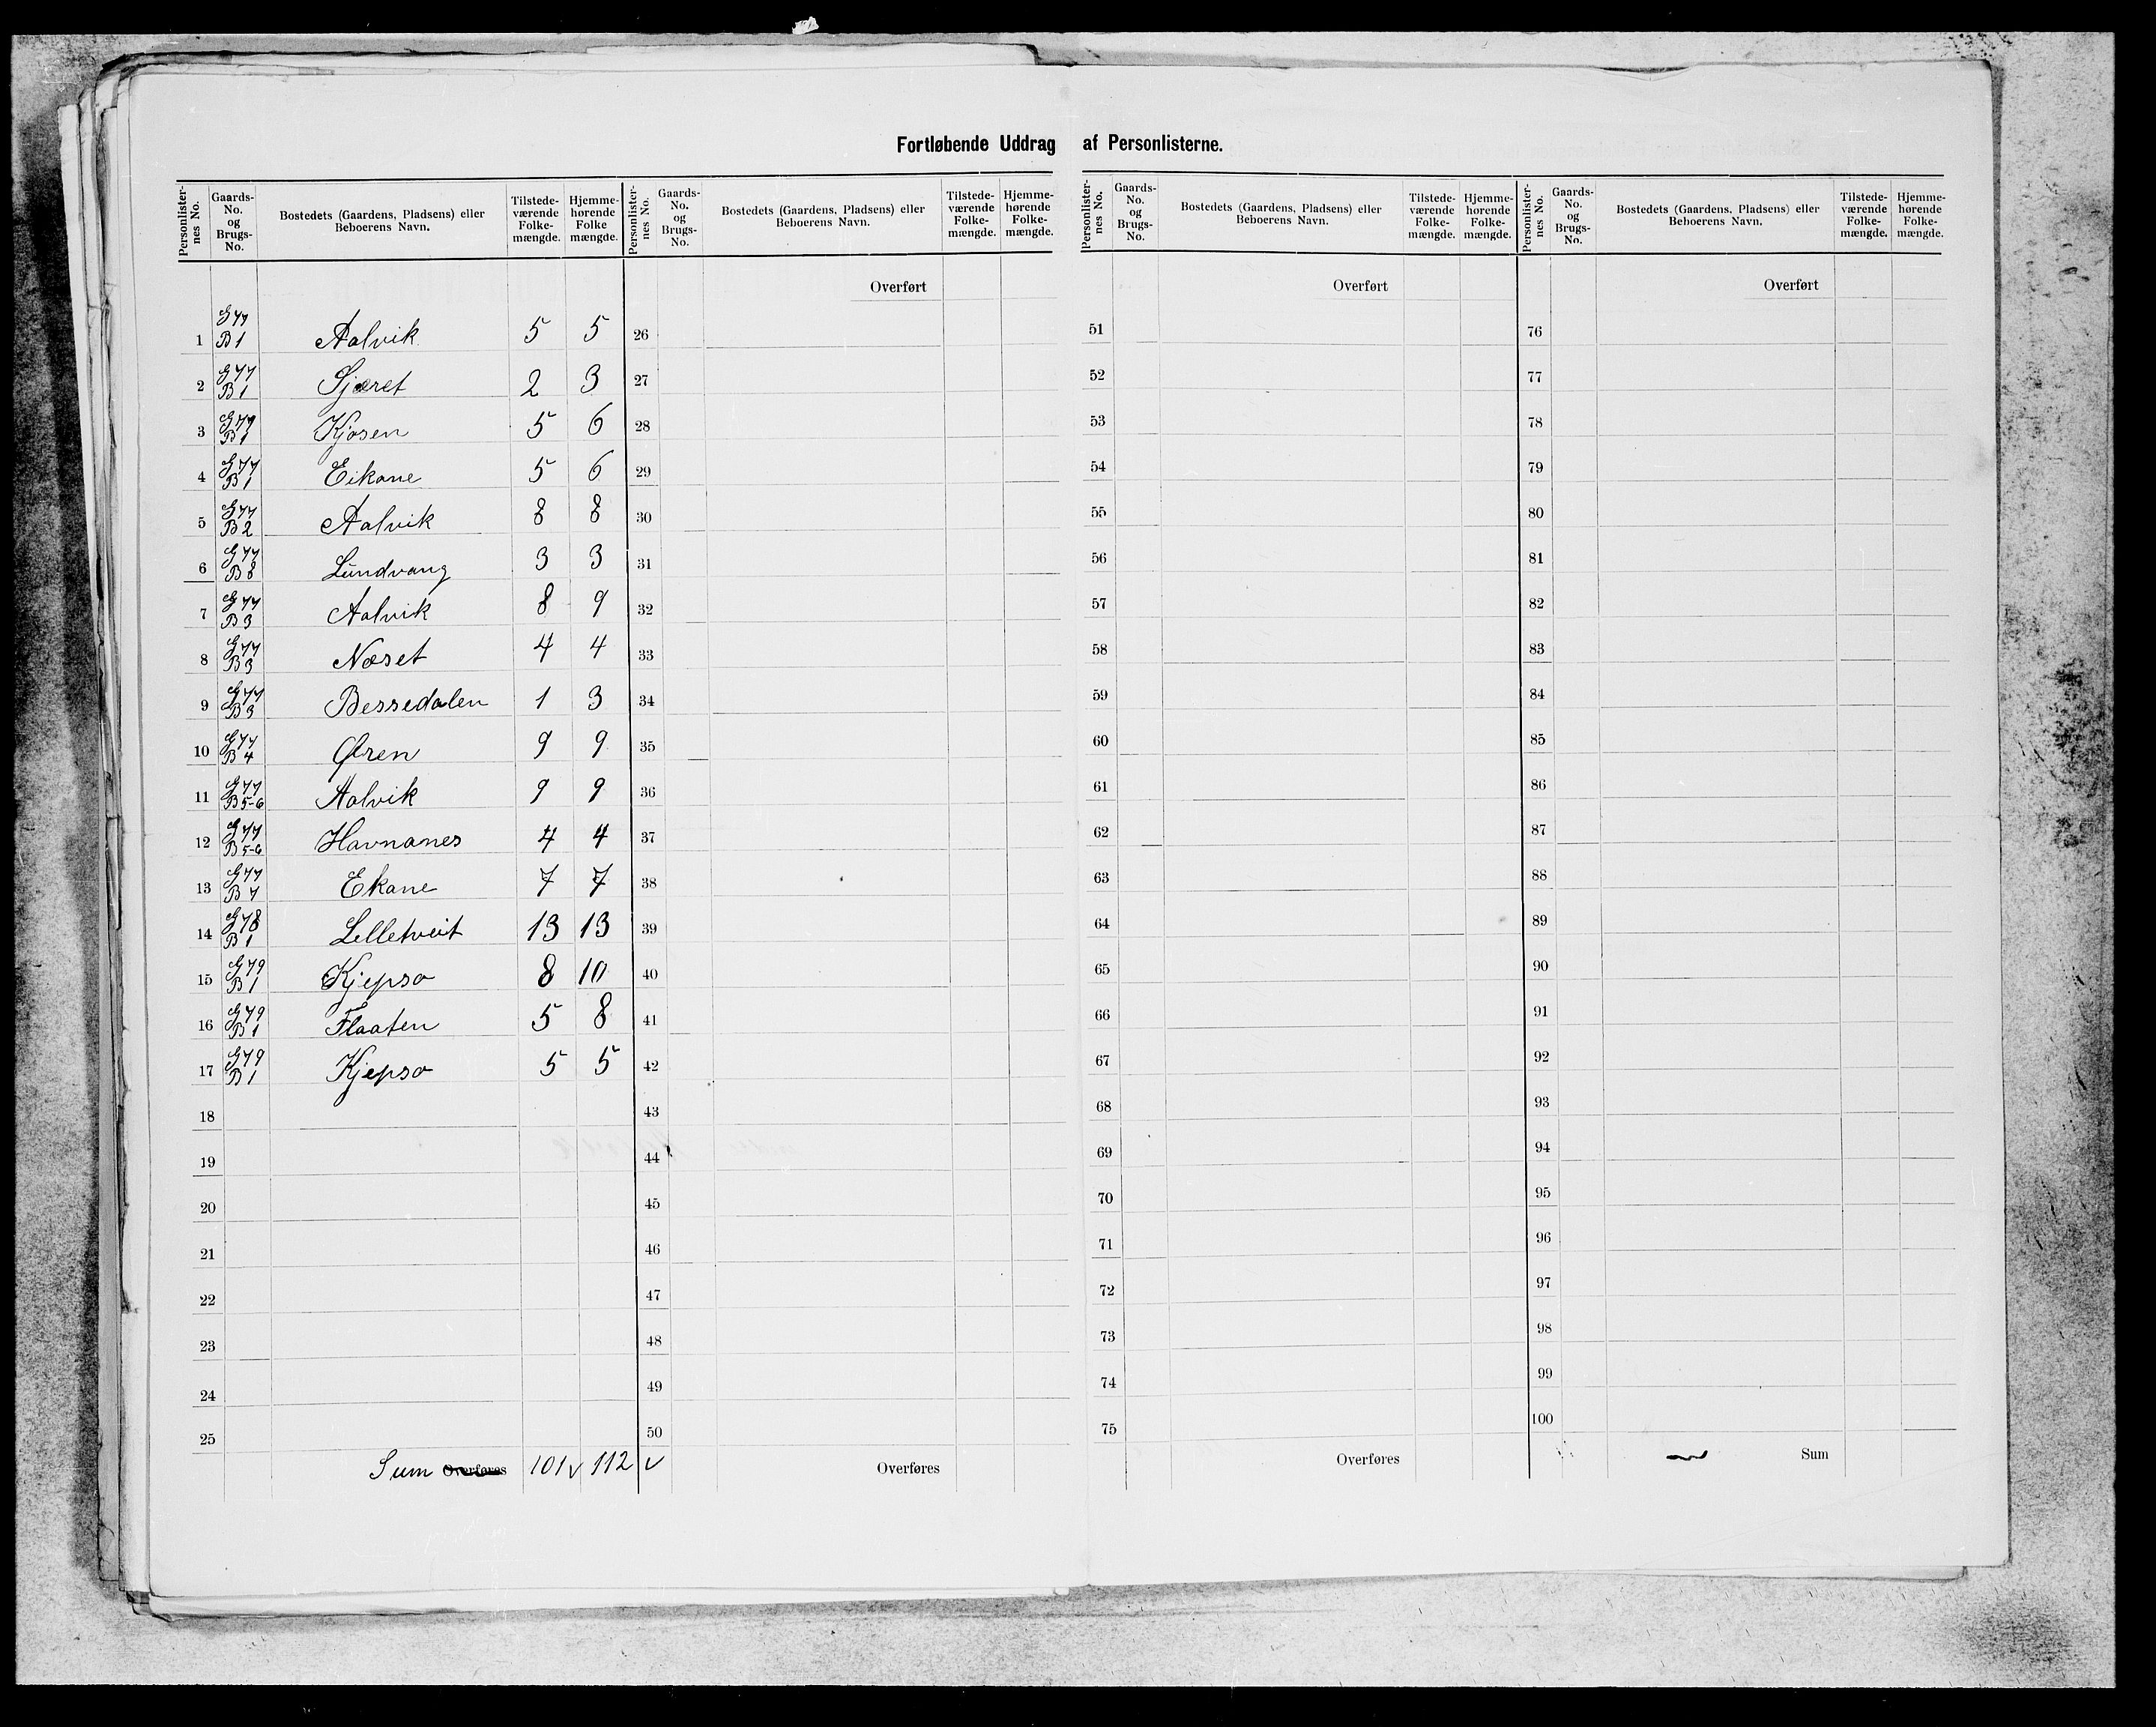 Fortløbende Uddrag af Personlisterne.
Personlisternes No. | Gaards-No. og Brugs-No. | Bostedets (Gaardens, Pladsens) eller Beboerens Navn. | Tilstedeværende Folkemængde. | Hjemmehørende Folke mængde.
Personlisternes No. | Gaards-No. og Brugs-No. | Bostedets (Gaardens, Pladsens) eller Beboerens Navn. | Tilstedeværende Folkemængde. | Hjemmehørende Folkemængde.
Personlisternes No. | Gaards-No. og Brugs-No. | Bostedets (Gaardens, Pladsens) eller Beboerens Navn. | Tilstedeværende Folkemængde. | Hjemmehørende Folkemængde.
Personlisternes No. | Gaards-No. og Brugs-No. | Bostedets (Gaardens, Pladsens) eller Beboerens Navn. | Tilstedeværende Folkemængde. | Hjemmehørende Folkemængde.
Overført Overført Overført
1 G77 B1 Aalvik 5 5 26 51 76
2 G77 B1 Sjæret 2 3 27 52 77
3 G79 B1 Kjosen 5 6 28 53 78
4 G77 B1 Eikane 5 6 29 54 79
5 G77 B2 Aalvik 8 8 30 55 80
6 G77 B8 Lundvang 3 3 31 56 81
7 G77 B3 Aalvik 8 9 32 57 82
8 G77 B3 Næset 4 4 33 58 83
9 G77 B3 Bessedalen 1 3 34 59 84
10 G77 B4 Øren 9 9 35 60 85
11 G77 B5-6 Aalvik 9 9 36 61 86
12 G77 B5-6 Havnanes 4 4 37 62 87
13 G77 B7 Ekane 7 7 38 63 88
14 G78 B1 Lilletveit 13 13 39 64 89
15 G79 B1 Kjepso 8 10 40 65 90
16 G79 B1 Flaaten 5 8 41 66 91
17 G79 B1 Kjepso 5 5 42 67 92
18 43 68 93
19 44 69 94
20 45 70 95
21 46 71 96
22 47 72 97
23 48 73 98
24 49 74 99
25 50 75 100
Sum Overføres 101 v 112 v Overføres Overføres Sum